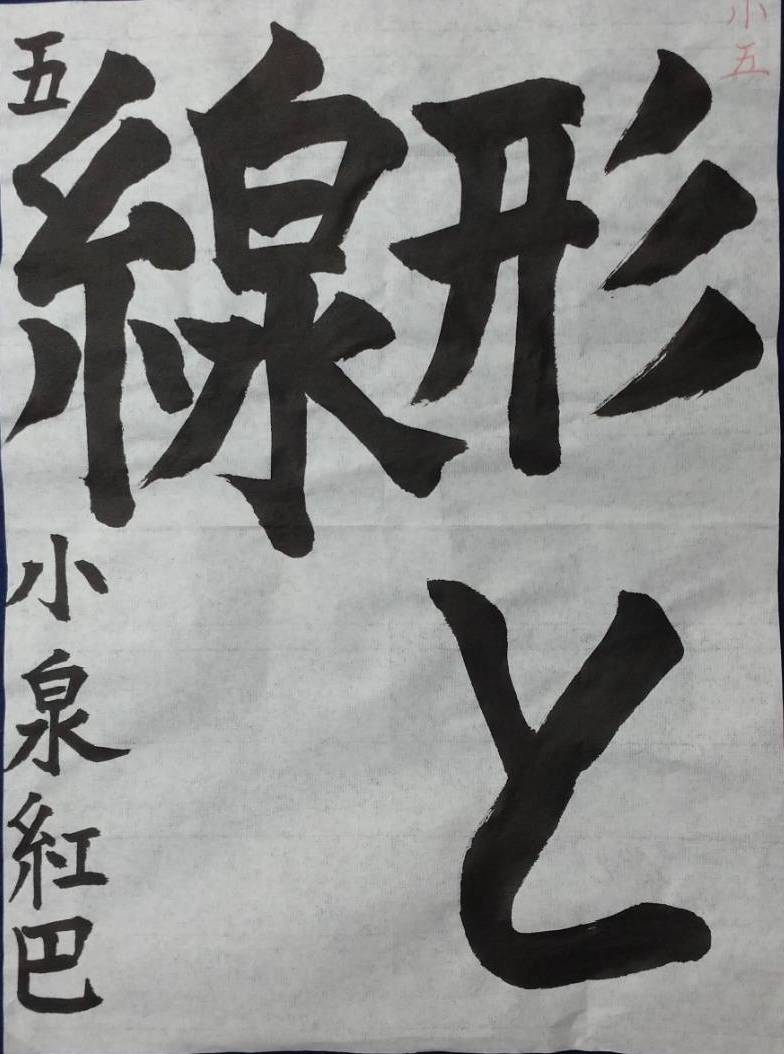 小五
形と
線
五 小泉紅巴